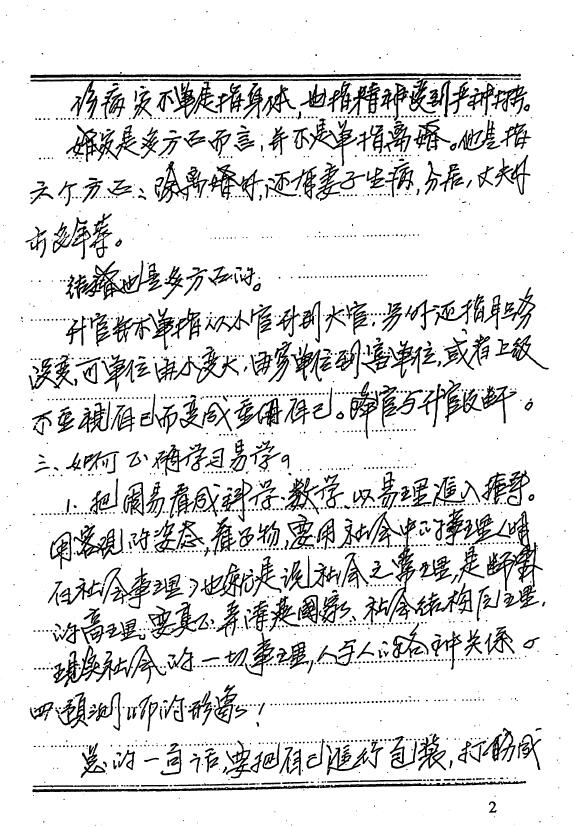 伤病灾不单是指身体,也指精神受到严种打击。
婚灾是多方面而言,并不是单指离婚。他是指
六个方面:除离婚外,还有妻子生病,分居,丈夫外
出多年等。
结婚也是多方面的。
升官并不单指从小官升到大官,另外还指职务
没变,可单位由小变大,由穷单位到富单位,或者上级
不重视自己而变成重用自己。降官与升官反断。
三、如何正确学习易学。
1. 把周易看成科学、数学,以易理进入推理。
用客观的姿态,看事物,要用社会中的事理(明
白社会事理)也就是说社会之常理,是断卦
的高理。要真正弄清楚国家、社会结构原理,
现实社会的一切事理,人与人的各种关系。
四 预测师的形象!
总的一句话,要把自己进行包装,打扮成
2